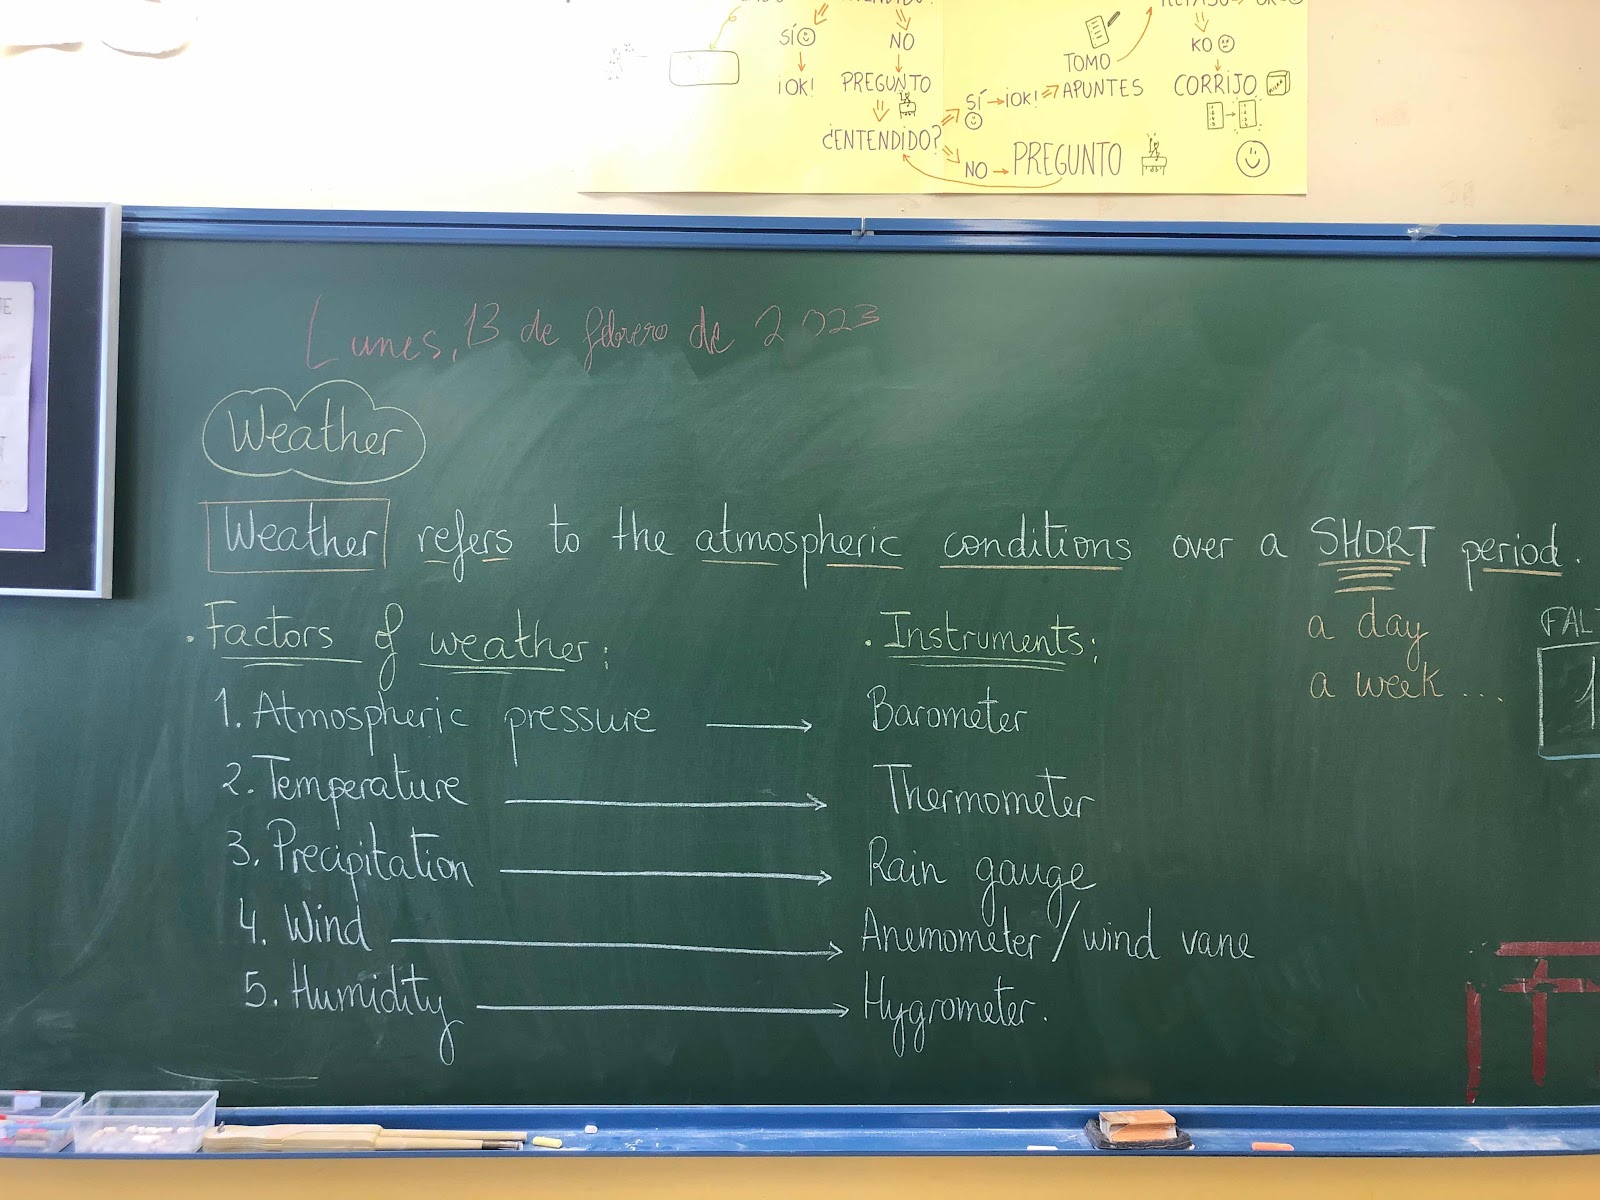 SÍ
NO
¡OK!
PREGUNTO
¿ENTENDIDO?
SÍ
¡OK!
TOMO
APUNTES
NO
PREGUNTO
KO
CORRIJO
Lunes, 13 de febrero de 2023
Weather
Weather refers to the atmospheric conditions over a SHORT period.
a day
a week ...
· Factors of weather:
· Instruments:
1. Atmospheric pressure → Barometer
2. Temperature → Thermometer
3. Precipitation → Rain gauge
4. Wind → Anemometer / wind vane
5. Humidity → Hygrometer.
FAL
1